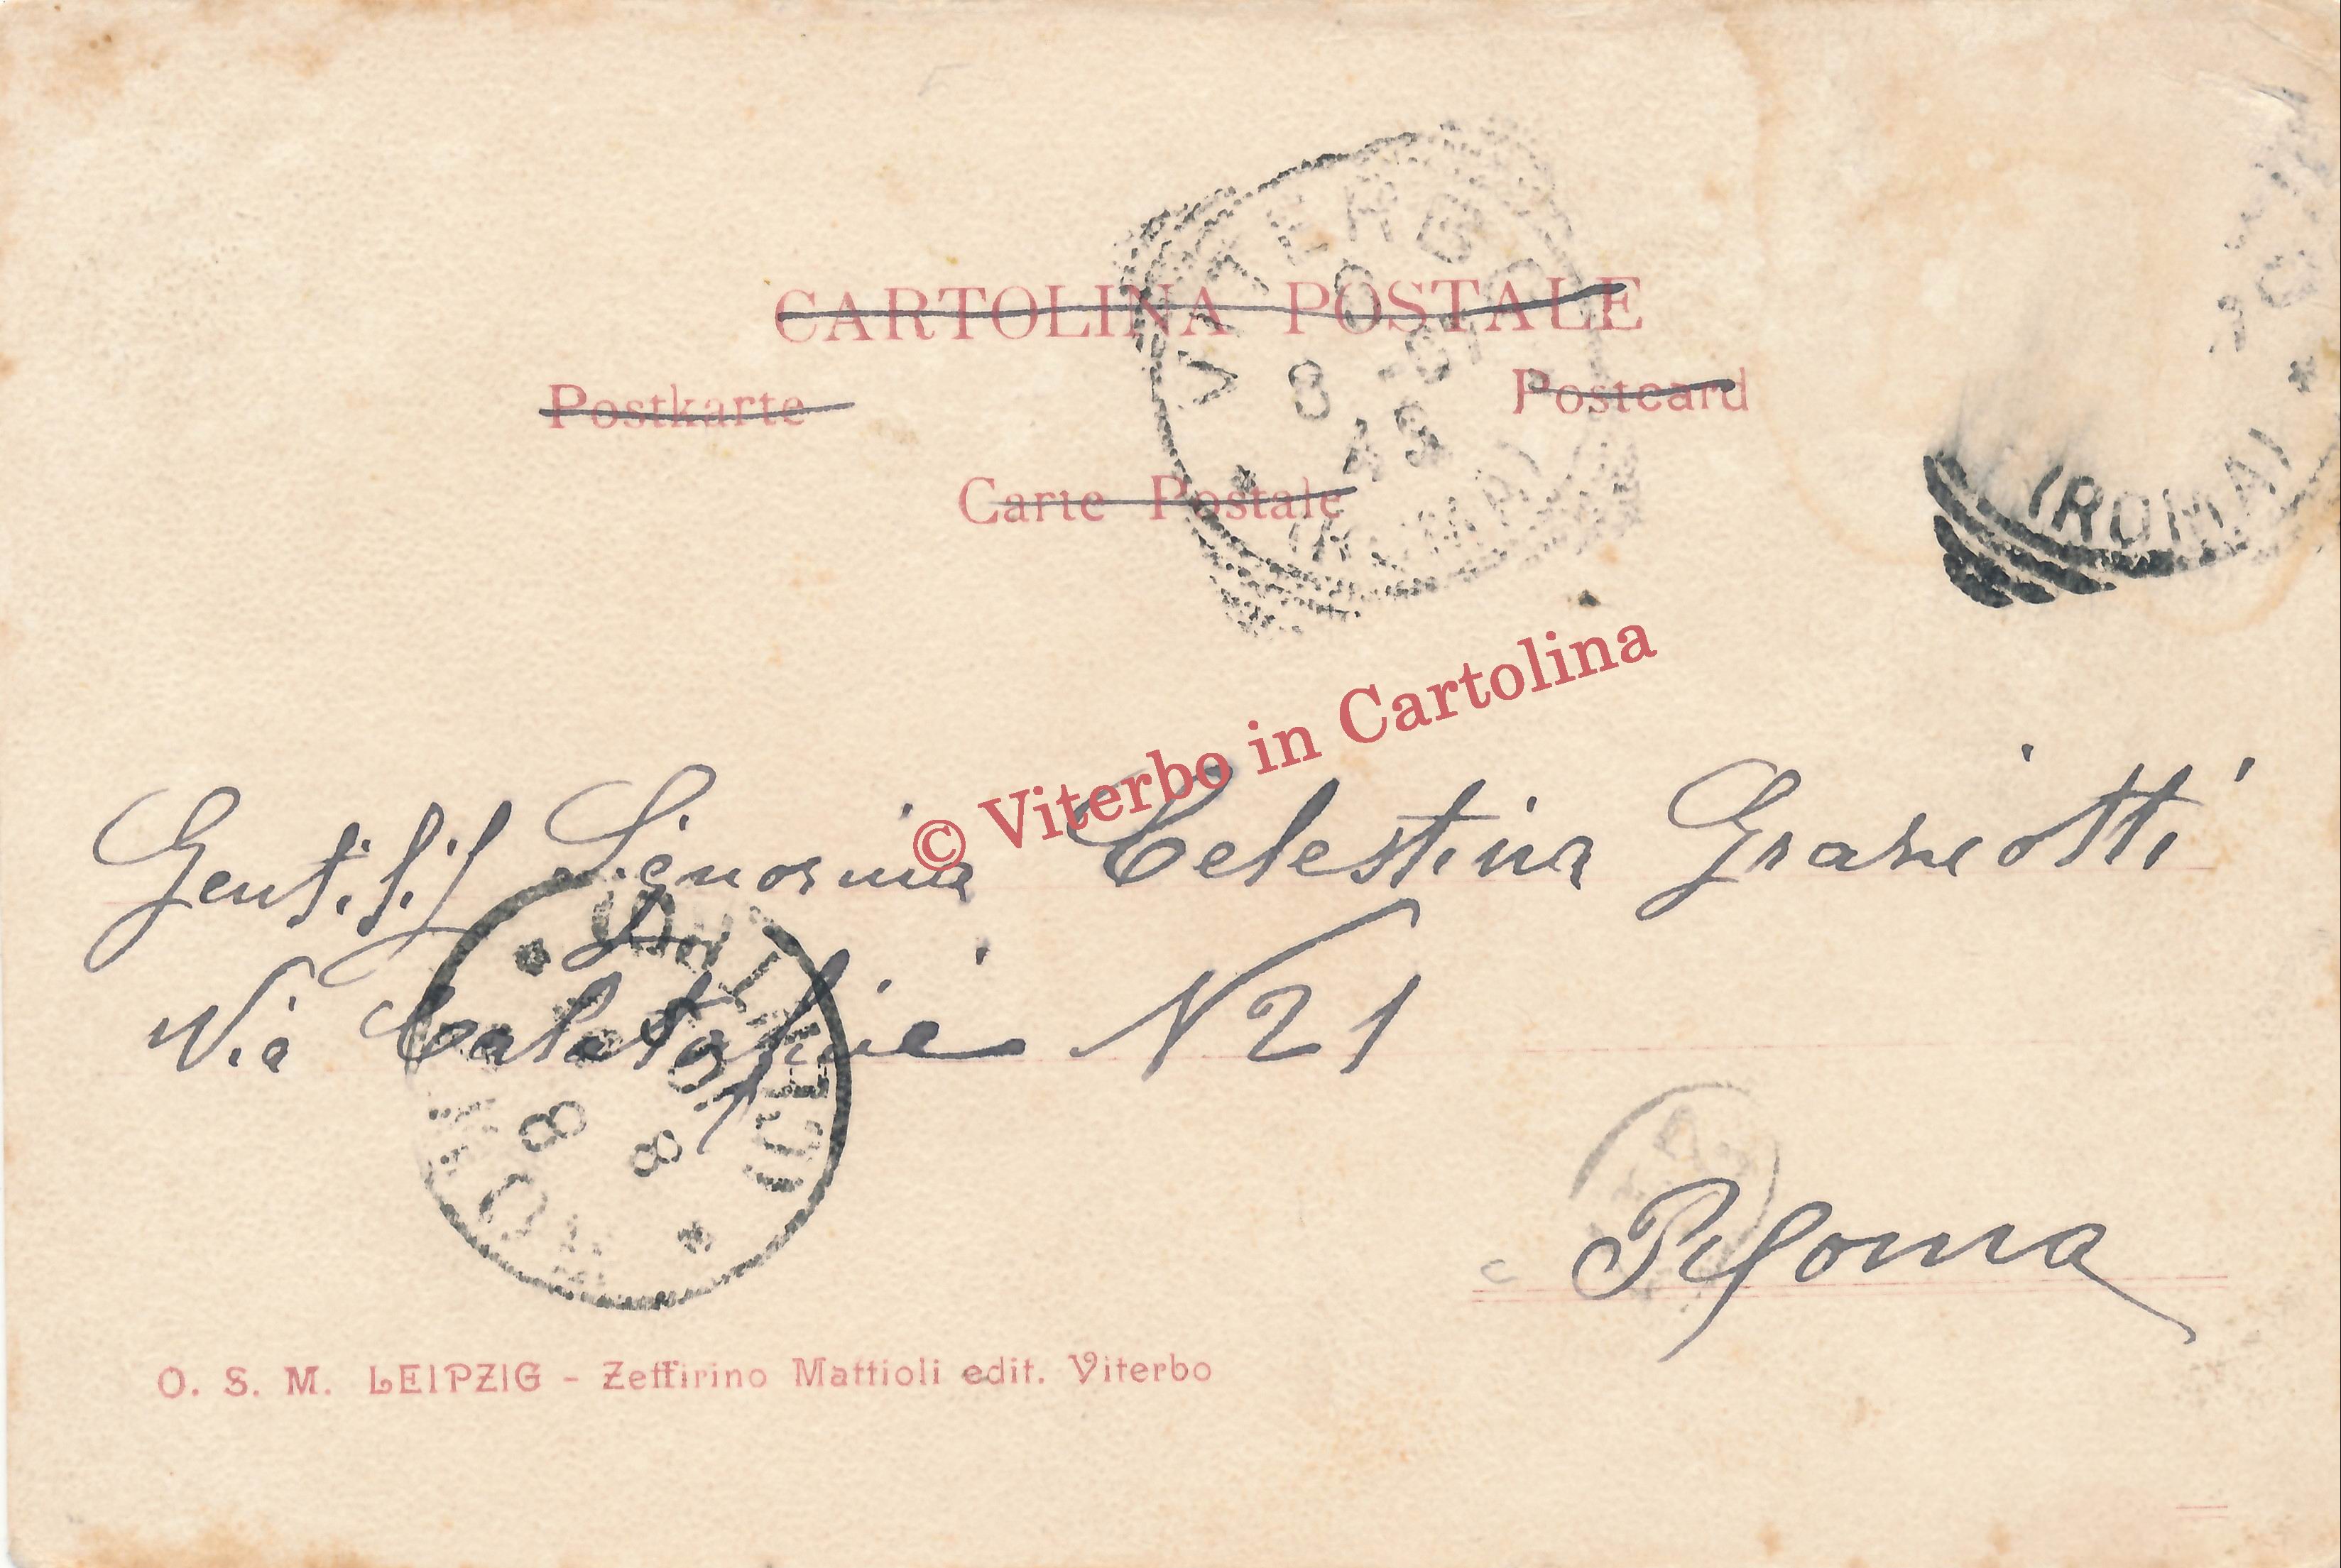 CARTOLINA POSTALE
Postkarte
Postcard
Carte Postale
VITERBO
8
(ROMA)
(ROMA)
© Viterbo in Cartolina
Signorina Celestina Graziotti
Via Calatafimi N 21
8 8
Roma
O. S. M. LEIPZIG - Zeffirino Mattioli edit. Viterbo